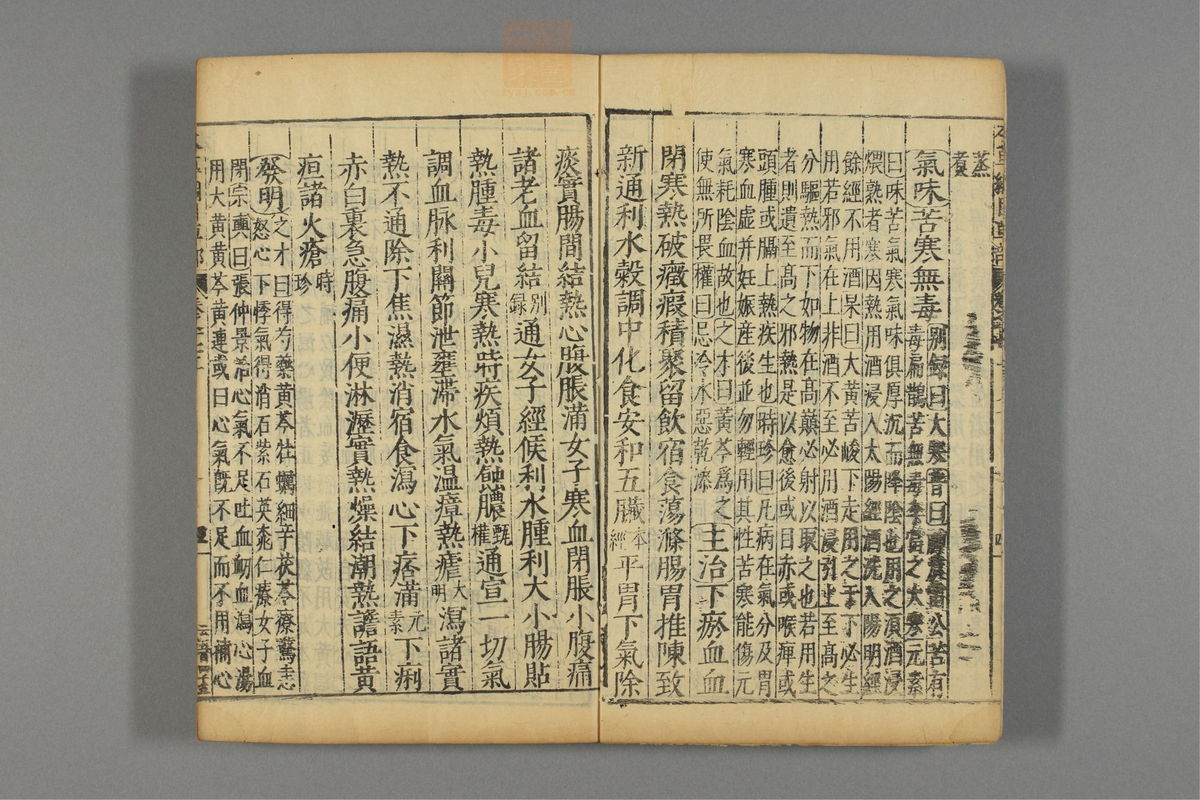 蒸
熬
氣味苦寒無毒
別錄曰大寒普曰神農雷公苦有
毒扁鵲苦無毒李當之大寒元素
曰味苦氣寒氣味俱厚沉而降陰也用之須酒浸
煨熟者寒因熱用酒浸入太陽經酒洗入陽明經
餘經不用酒杲曰大黃苦峻下走用之于下必生
用若邪氣在上非酒不至必用酒浸引上至高之
分驅熱而下如物在高巔必射以取之也若用生
者則遺至高之邪熱是以愈後或目赤或喉痺或
頭腫或膈上熱疾生也時珍曰凡病在氣分及胃
寒血虛并妊娠産後並勿輕用其性苦寒能傷元
氣耗陰血故也之才曰黃芩爲之
使無所畏權曰忌冷水惡乾漆
主治下瘀血血
閉寒熱破癥瘕積聚留飲宿食蕩滌腸胃推陳致
新通利水穀調中化食安和五臟本經平胃下氣除
痰實腸間結熱心腹脹滿女子寒血閉脹小腹痛
諸老血留結別録通女子經候利水腫利大小腸貼
熱腫毒小兒寒熱時疾煩熱蝕膿甄權通宣一切氣
調血脉利關節泄壅滯水氣温瘴熱瘧大明瀉諸實
熱不通除下焦濕熱消宿食瀉心下痞滿元素下痢
赤白裏急腹痛小便淋瀝實熱燥結潮熱譫語黃
疸諸火瘡時珍
發明
之才曰得芍藥黃芩牡蠣細辛茯苓療驚恚
怒心下悸氣得消石紫石英桃仁療女子血
閉宗奭曰張仲景治心氣不足吐血衂血瀉心湯
用大黃黃芩黃連或曰心氣旣不足而不用補心